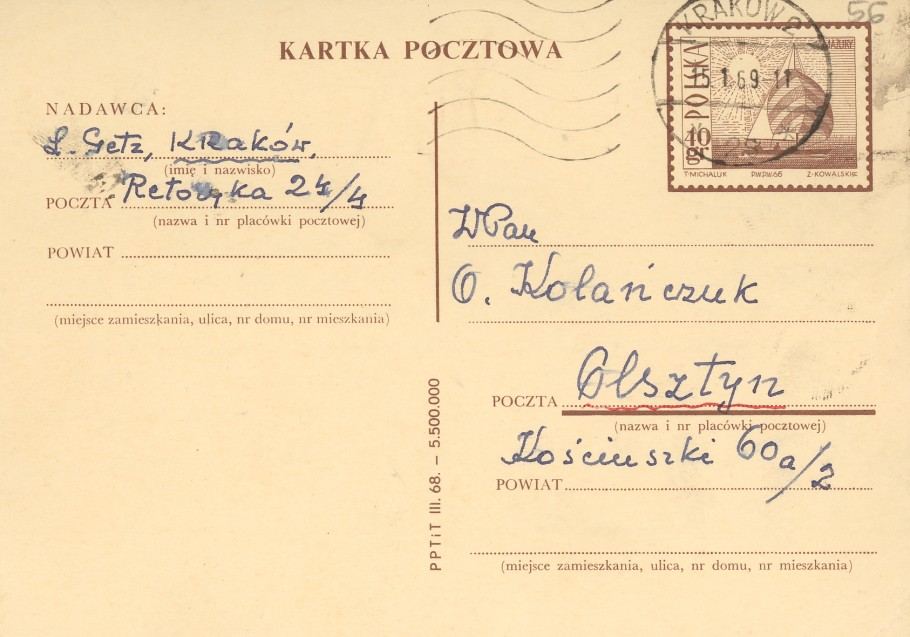 56
KARTKA POCZTOWA
KRAKÓW 2
15.1.69-11
MAZURY
POLSKA
40 gr
T·MICHALUK P.W.P.W.66 Z·KOWALSKI
NADAWCA:
L. Getz, Kraków,
(imię i nazwisko)
POCZTA Retoryka 24/4
(nazwa i nr placówki pocztowej)
POWIAT
(miejsce zamieszkania, ulica, nr domu, nr mieszkania)
PPTiT III. 68. – 5.500.000
WPan
O. Kolańczuk
Olsztyn
POCZTA
(nazwa i nr placówki pocztowej)
Kościuszki 60a/2
POWIAT
(miejsce zamieszkania, ulica, nr domu, nr mieszkania)